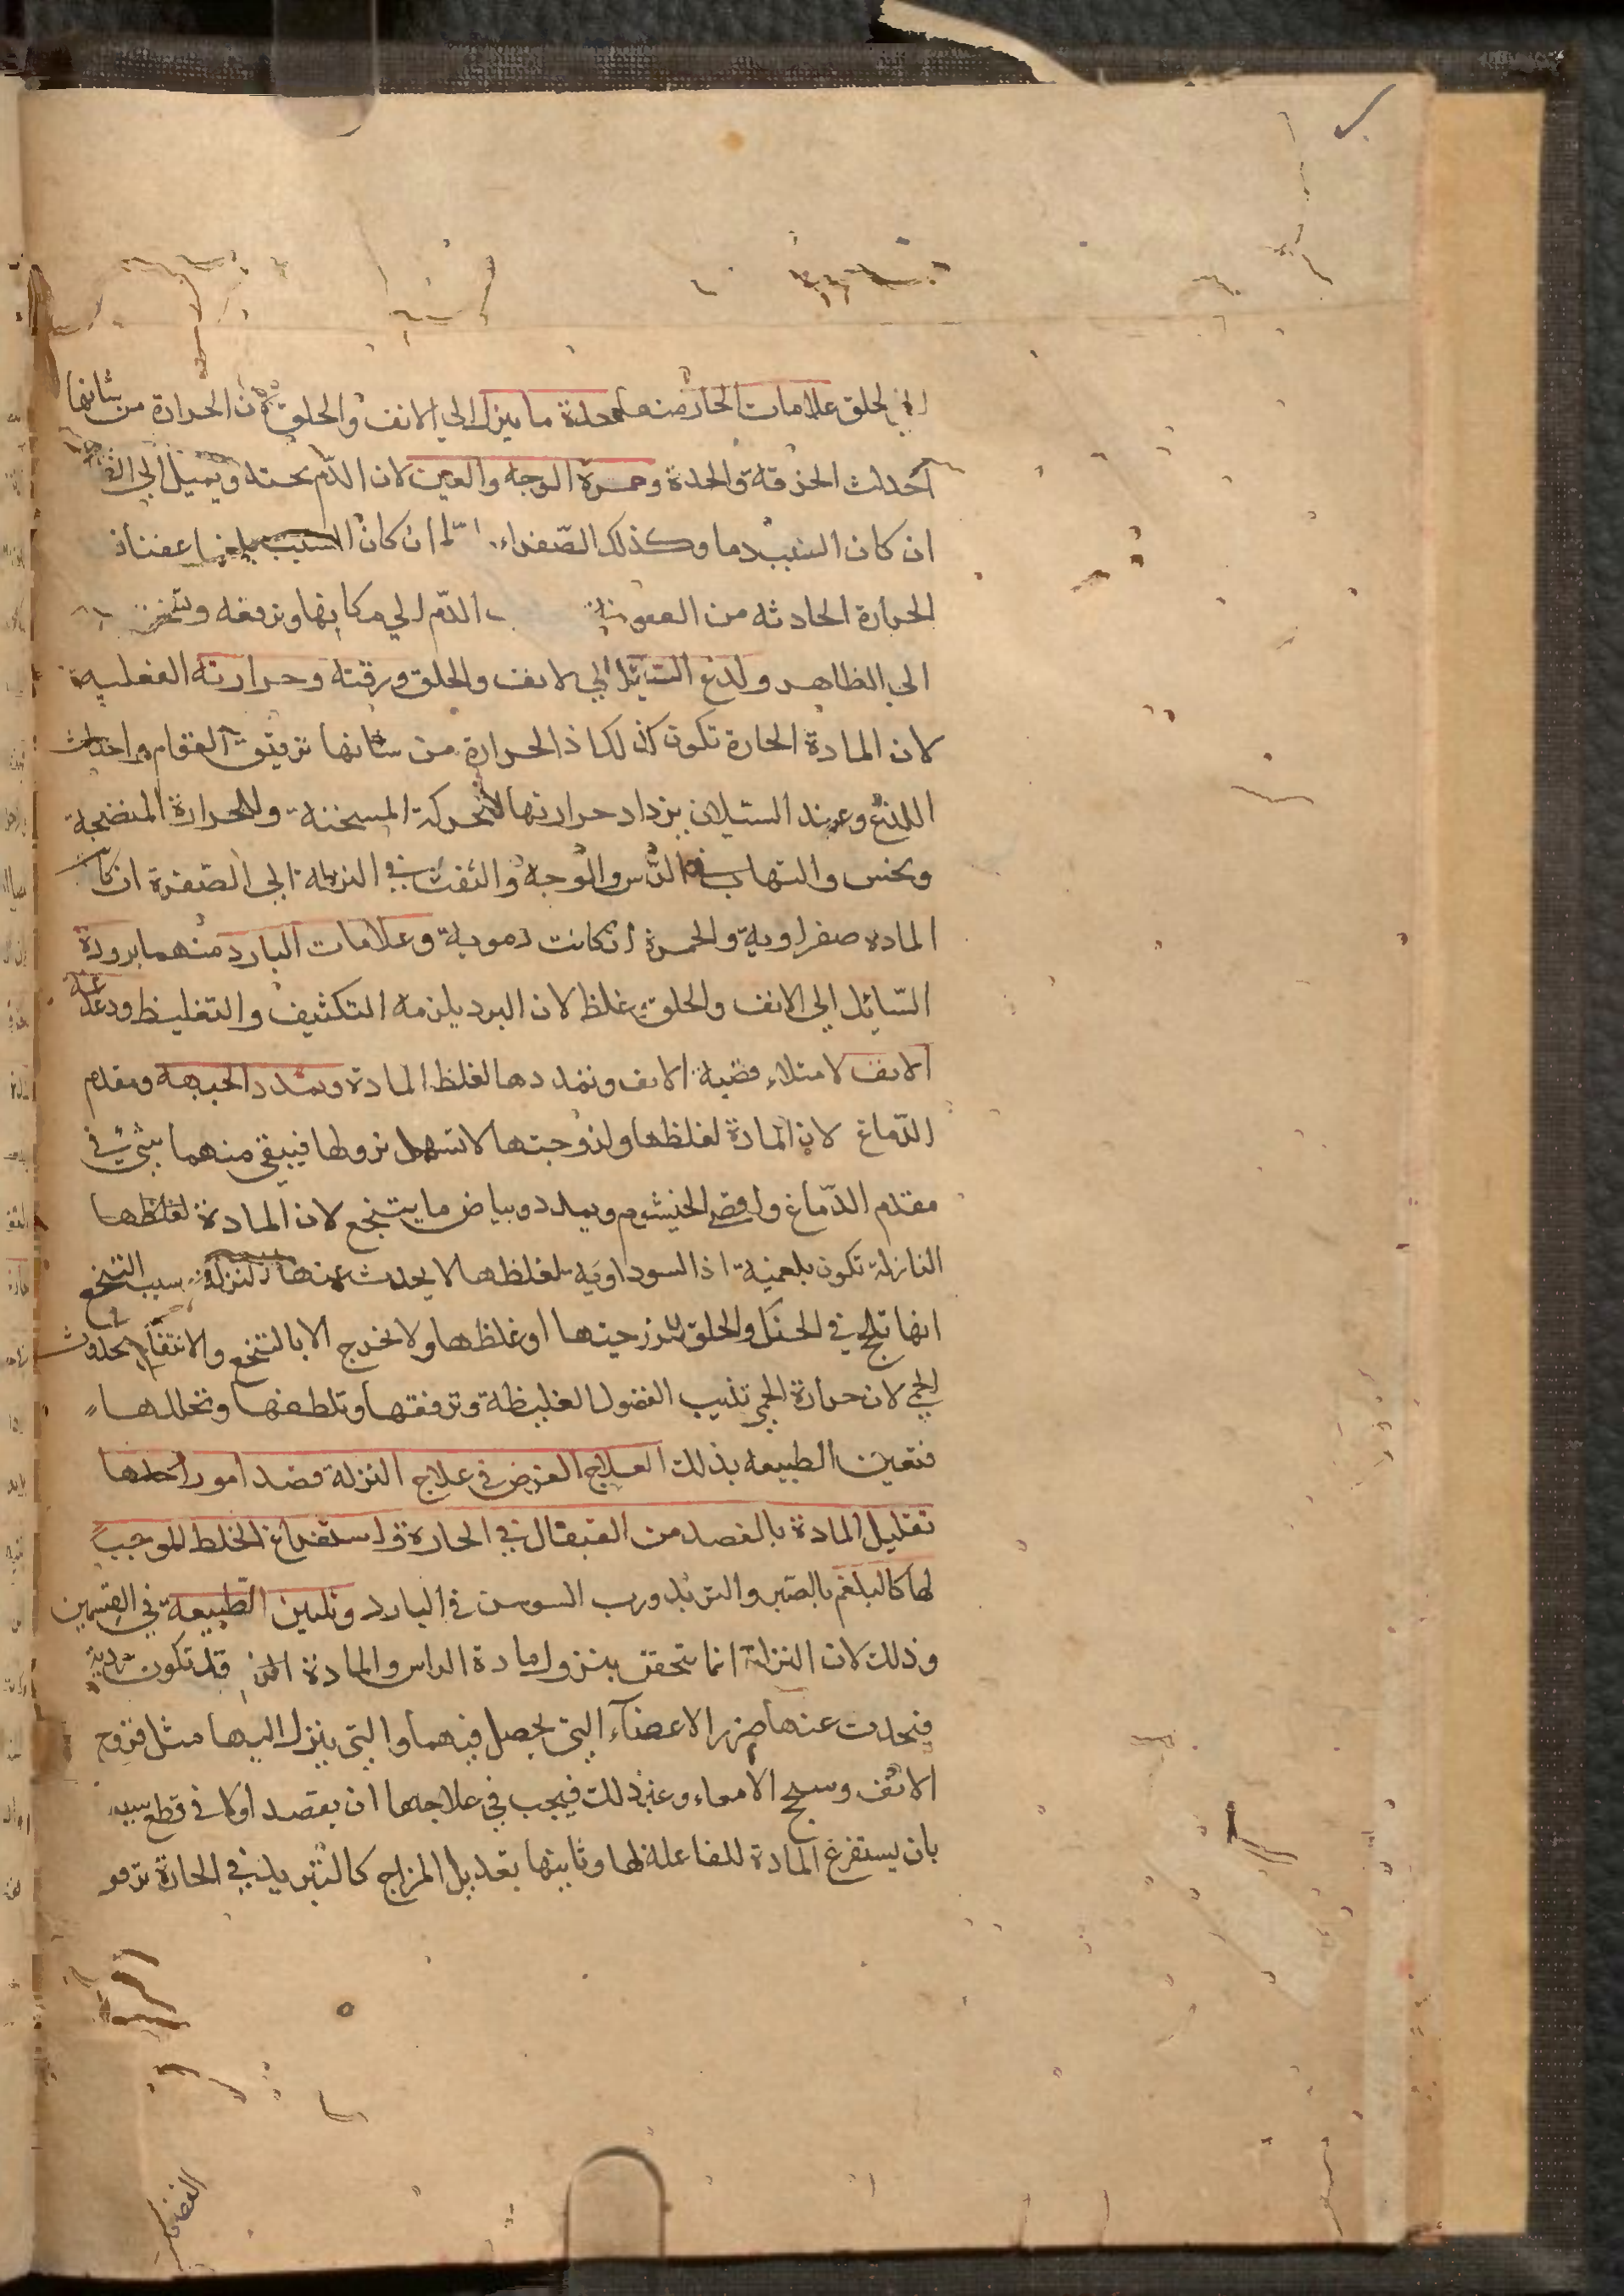 الي الحلق علامات الحار منهما حدة ما ينزل الي الانف والحلق لان الحرارة من شانها
احداث الحرقة والحدة وحمرة الوجه والعين لان الدم يحتد ويميل الي
ان كان السبب دما وكذلك الصفراء اما ان كان السبب بلغما عفنا فان
الحرارة الحادثه من العفونة الدم الي مكانها وترققه وتخرز
الي الظاهر ولدغ السائل الي الانف والحلق ورقته وحرارته الفعلية
لان المادة الحارة تكون كذلك اذ الحرارة من شانها ترقيق القوام واحداث
اللذع وعند السيلان يزداد حرارتها للحركة المسخنة وللحرارة المنضجة
ونخس والتهاب في الراس والوجه والنفث في النزلة الي الصفرة ان كانت
المادة صفراوية والحمرة ان كانت دموية وعلامات البارد منهما برودة
السائل الي الانف والحلق غلظ لان البرد يلزمه التكثيف والتغليظ ودغدغة
الانف لامتلاء قصبة الانف وتمددها لغلظ المادة وتمدد الجبهة ومقدم
الدماغ لان المادة لغلظها ولزوجتها لا تسهل نزولها فيبقي منهما شيء في
مقدم الدماغ واقصي الخيشوم ويمدد وبياض ما يتنخع لان المادة لغلظها
النازلة تكون بلغمية اذ السوداوية لغلظها لا يحدث عنها النزلة سبب التنخع
انها تلج في الحنك والحلق للزوجتها او غلظها ولا تخرج الا بالتنخع والانتفاع بحدوث
الحمي لان حرارة الحمي تذيب الفضول الغليظة وترققها وتلطفها وتحللها
فتعين الطبيعه بذلك العلاج الغرض في علاج النزلة قصد امور احدها
تقليل المادة بالفصد من القيفال في الحارة واستفراغ الخلط الموجب
لها كالبلغم بالصبر والتربد ورب السوس في البارد وتليين الطبيعة في القسمين
وذلك لان النزلة انما تتحقق بنزول مادة الراس والمادة قد تكون ردية
فتحدث عنها ضرر الاعضآء التي يحصل فيهما والتي ينزل اليها مثل قروح
الانف وسحج الامعاء وغير ذلك فيجب في علاجها ان يقصد اولا في قطع سببه
بان يستفرغ المادة للفاعلة لها وثانيها تعديل المزاج كالتبريد في الحارة